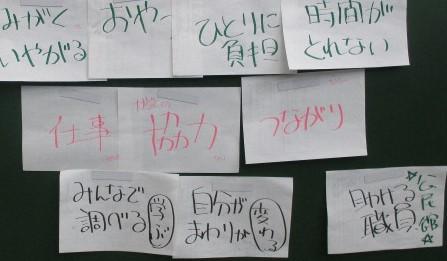 みがく
いやがる
おやつ
ひとりに
負担
時間が
とれない
仕事
協力
つながり
みんなで
調べる
学ぶ
自分が
まわりが
変わる
助ける
職員
公民館